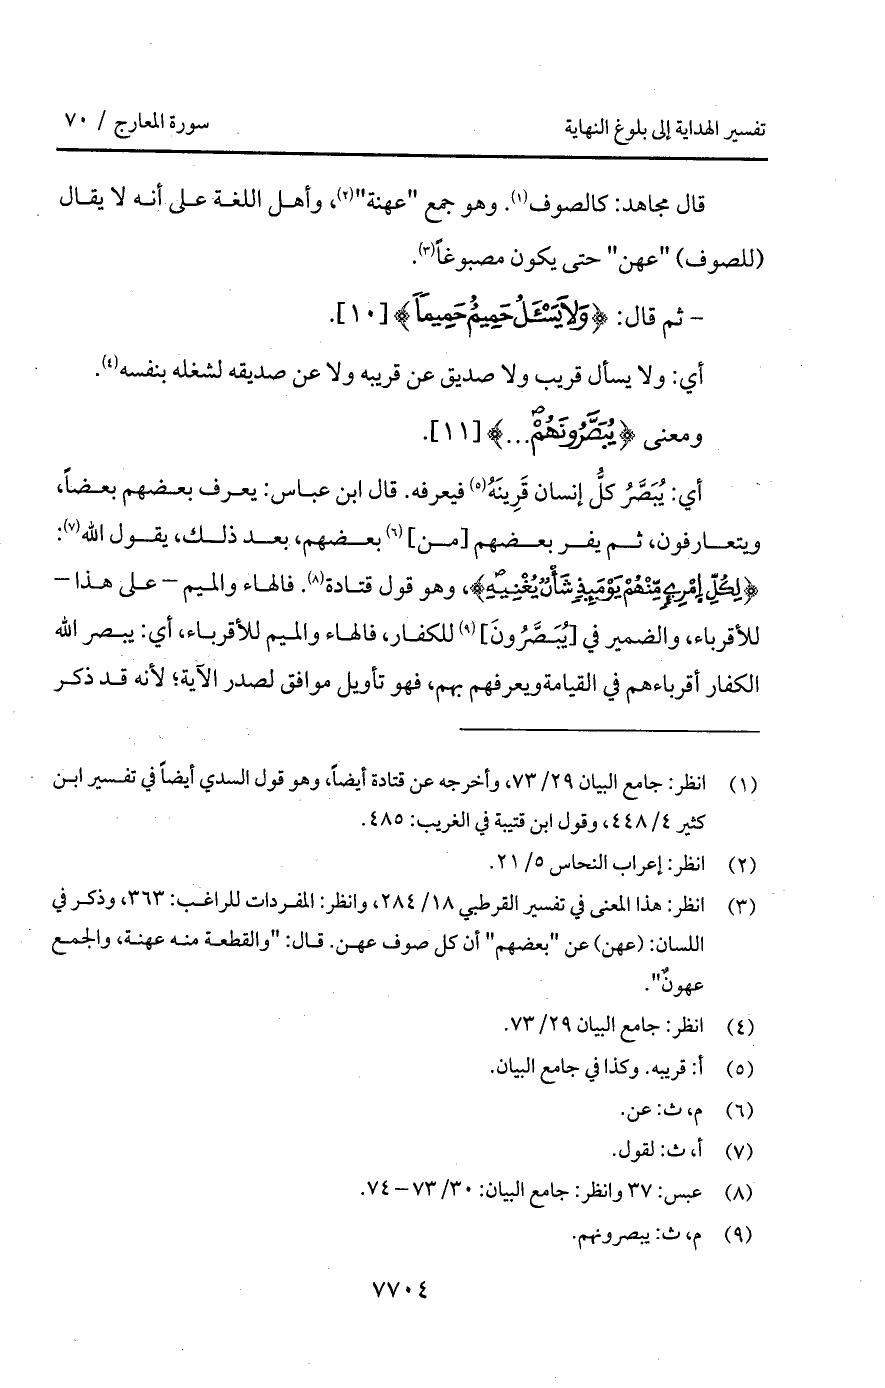 تفسير الهداية إلى بلوغ النهاية
سورة المعارج / ٧٠
قال مجاهد: كالصوف(١). وهو جمع "عهنة"(٢)، وأهـل اللغـة عـلى أنـه لا يقـال
(للصوف) "عهن" حتى يكون مصبوغاً(٣).
- ثم قال: ﴿وَلَا يَسْـَٔلُ حَمِيمٌ حَمِيماً﴾ [١٠].
أي: ولا يسأل قريب ولا صديق عن قريبه ولا عن صديقه لشغله بنفسه(٤).
ومعنى ﴿يُبَصَّرُونَهُمْ...﴾ [١١].
أي: يُبَصَّرُ كلُّ إنسان قَرِينَهُ(٥) فيعرفه. قال ابن عباس: يعرف بعضهم بعضاً،
ويتعـارفون، ثـم يفـر بعـضهم [مـن](٦) بعـضهم، بعـد ذلـك، يقـول الله(٧):
﴿لِكُلِّ اِمْرِيءٍ مِّنْهُمْ يَوْمَئِذٍ شَأْنٌ يُغْنِيهِ﴾، وهو قول قتادة(٨). فالهاء والميم -على هذا-
للأقرباء، والضمير في [يُبَصَّرُونَ](٩) للكفار، فالهاء والميم للأقرباء، أي: يبصر الله
الكفار أقرباءهم في القيامة ويعرفهم بهم، فهو تأويل موافق لصدر الآية؛ لأنه قـد ذكـر
(١) انظر: جامع البيان ٢٩/ ٧٣، وأخرجه عن قتادة أيضاً، وهو قول السدي أيضاً في تفسير ابـن
كثير ٤/ ٤٤٨، وقول ابن قتيبة في الغريب: ٤٨٥.
(٢) انظر: إعراب النحاس ٥/ ٢١.
(٣) انظر: هذا المعنى في تفسير القرطبي ١٨/ ٢٨٤، وانظر: المفردات للراغب: ٣٦٣، وذكر في
اللسان: (عهن) عن "بعضهم" أن كل صوف عهن. قال: "والقطعة منه عهنة، والجمع
عهونٌ".
(٤) انظر: جامع البيان ٢٩/ ٧٣.
(٥) أ: قريبه. وكذا في جامع البيان.
(٦) م، ث: عن.
(٧) أ، ث: لقول.
(٨) عبس: ٣٧ وانظر: جامع البيان: ٣٠/ ٧٣ - ٧٤.
(٩) م، ث: يبصرونهم.
٧٧٠٤